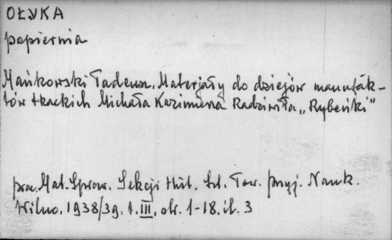 OŁYKA
papiernia
Mańkowski Tadeusz. Materjały do dziejów manufak-
tów tkackich Michała Kazimierza Radziwiła „Rybeńki"
prac. Mat. Spraw. Sekcji Hist. Szt. Tow. przyj. Nauk.
Wilno. 1938/39. t. III, str. 1-18. il. 3